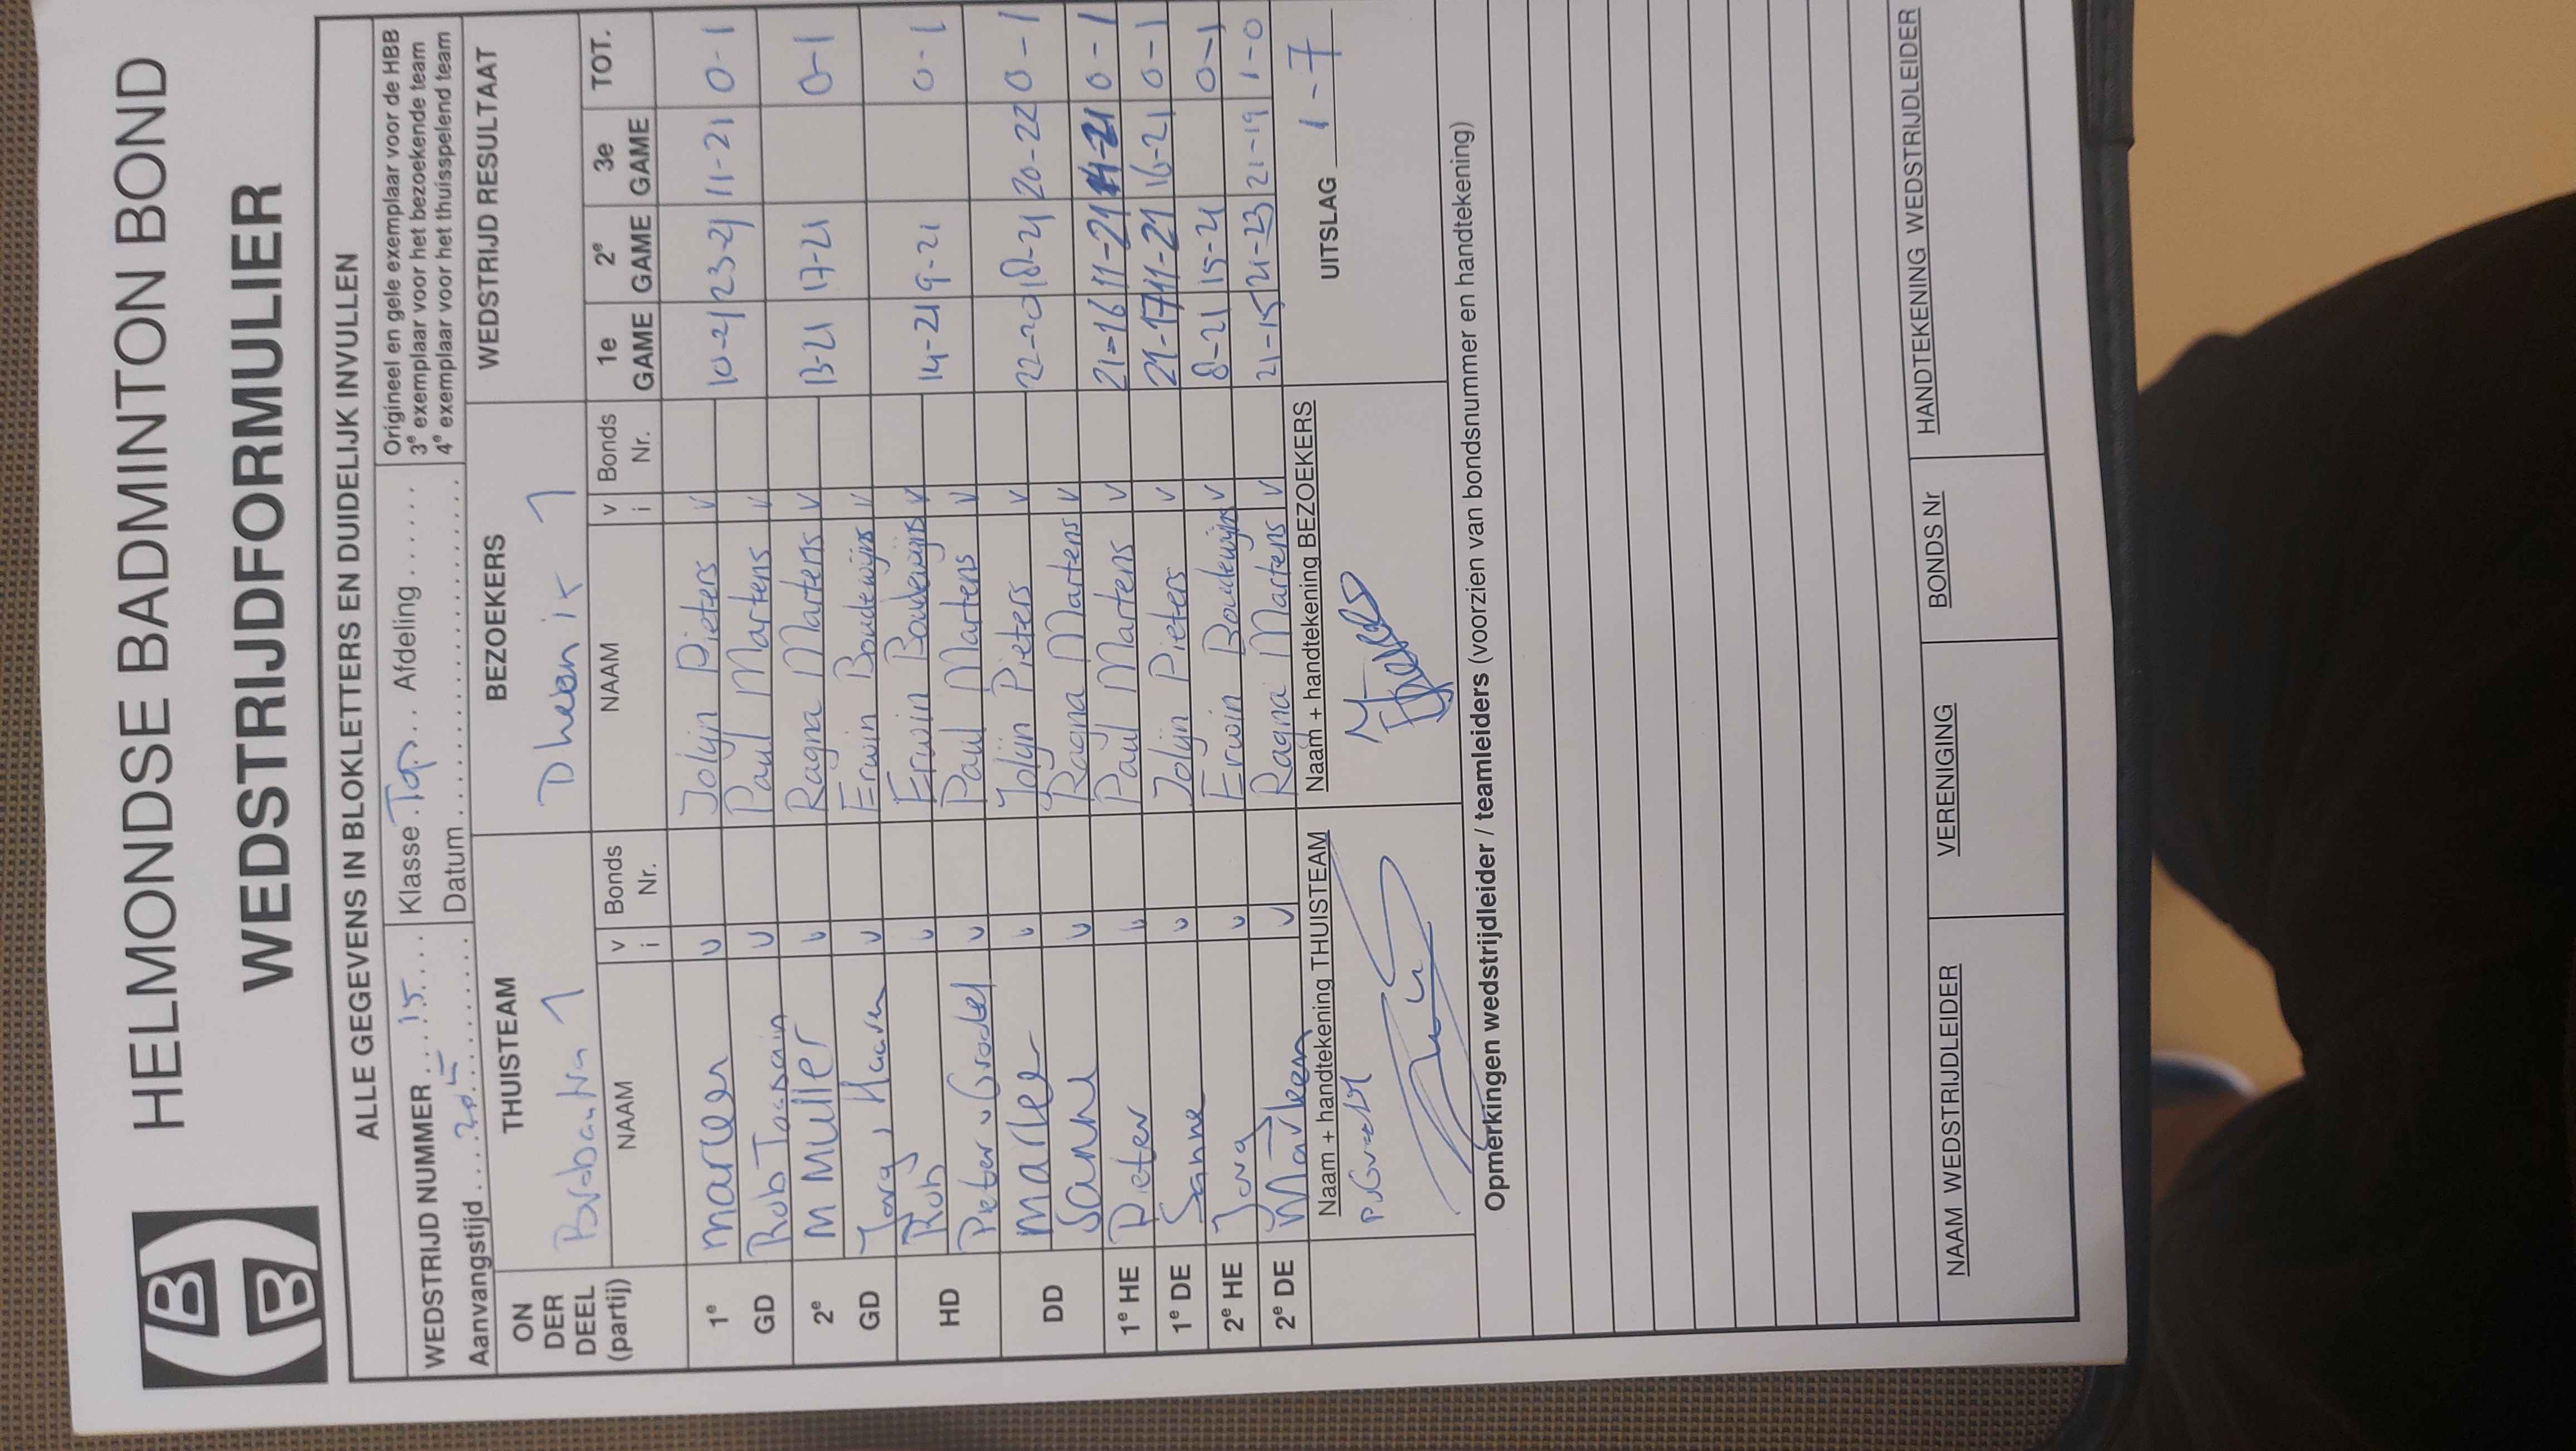 HELMONDSE BADMINTON BOND
WEDSTRIJDFORMULIER
ALLE GEGEVENS IN BLOKLETTERS EN DUIDELIJK INVULLEN
WEDSTRIJD NUMMER 15 Klasse Top Afdeling
Origineel en gele exemplaar voor de HBB
Aanvangstijd Datum
3e exemplaar voor het bezoekende team
4e exemplaar voor het thuisspelend team
ON DER DEEL (partij) THUISTEAM BEZOEKERS WEDSTRIJD RESULTAAT
Brabantia 1
NAAM v i Bonds Nr. NAAM v i Bonds Nr. 1e GAME 2e GAME 3e GAME TOT.
1e GD v Jolijn Pieters v 10-21 23-21 11-21 0-1
Rob v Paul Martens v
2e GD M Muller v Ragna Martens v 13-21 17-21 0-1
Jorg v Erwin Boudewijns v
HD Rob v Erwin Boudewijns v 14-21 9-21 0-1
Peter v v Paul Martens v
DD v Jolijn Pieters v 22-20 18-21 20-22 0-1
Sanne v Ragna Martens v
1e HE Pieter v Paul Martens v 21-16 11-21 0-1
1e DE Sanne v Jolijn Pieters v 21-17 11-21 16-21 0-1
2e HE Jorg v Erwin Boudewijns v 8-21 15-21 0-1
2e DE Marleen v Ragna Martens v 21-15 21-23 21-19 1-0
Naam + handtekening THUISTEAM Naam + handtekening BEZOEKERS
UITSLAG 1-7
Opmerkingen wedstrijdleider / teamleiders (voorzien van bondsnummer en handtekening)
NAAM WEDSTRIJDLEIDER VERENIGING BONDS Nr HANDTEKENING WEDSTRIJDLEIDER